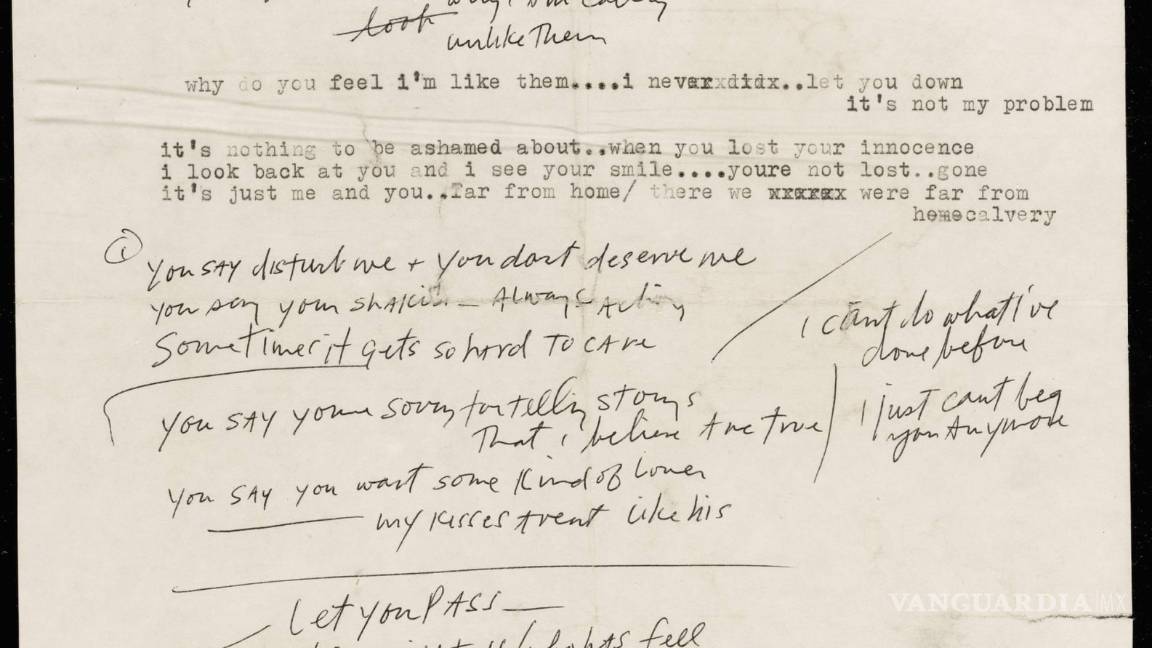 look
unlike Them
why do you feel i'm like them....i neverxdidx..let you down
it's not my problem
it's nothing to be ashamed about..when you lost your innocence
i look back at you and i see your smile....youre not lost..gone
it's just me and you..far from home/ there we xxxxxx were far from
homecalvery
1 You SAY disturb me + you dont deserve me
you say your shakin — Always Acting
Sometimes it gets so hard TO CAre
i cant do what i've
done before
You SAY your sorry for telling storys
That i believe Are True
i just cant beg
you Anymore
You SAY you want some Kind of Lover
my Kisses Arent like his
Let you PASS —
fell
VANGUARDIA|MX